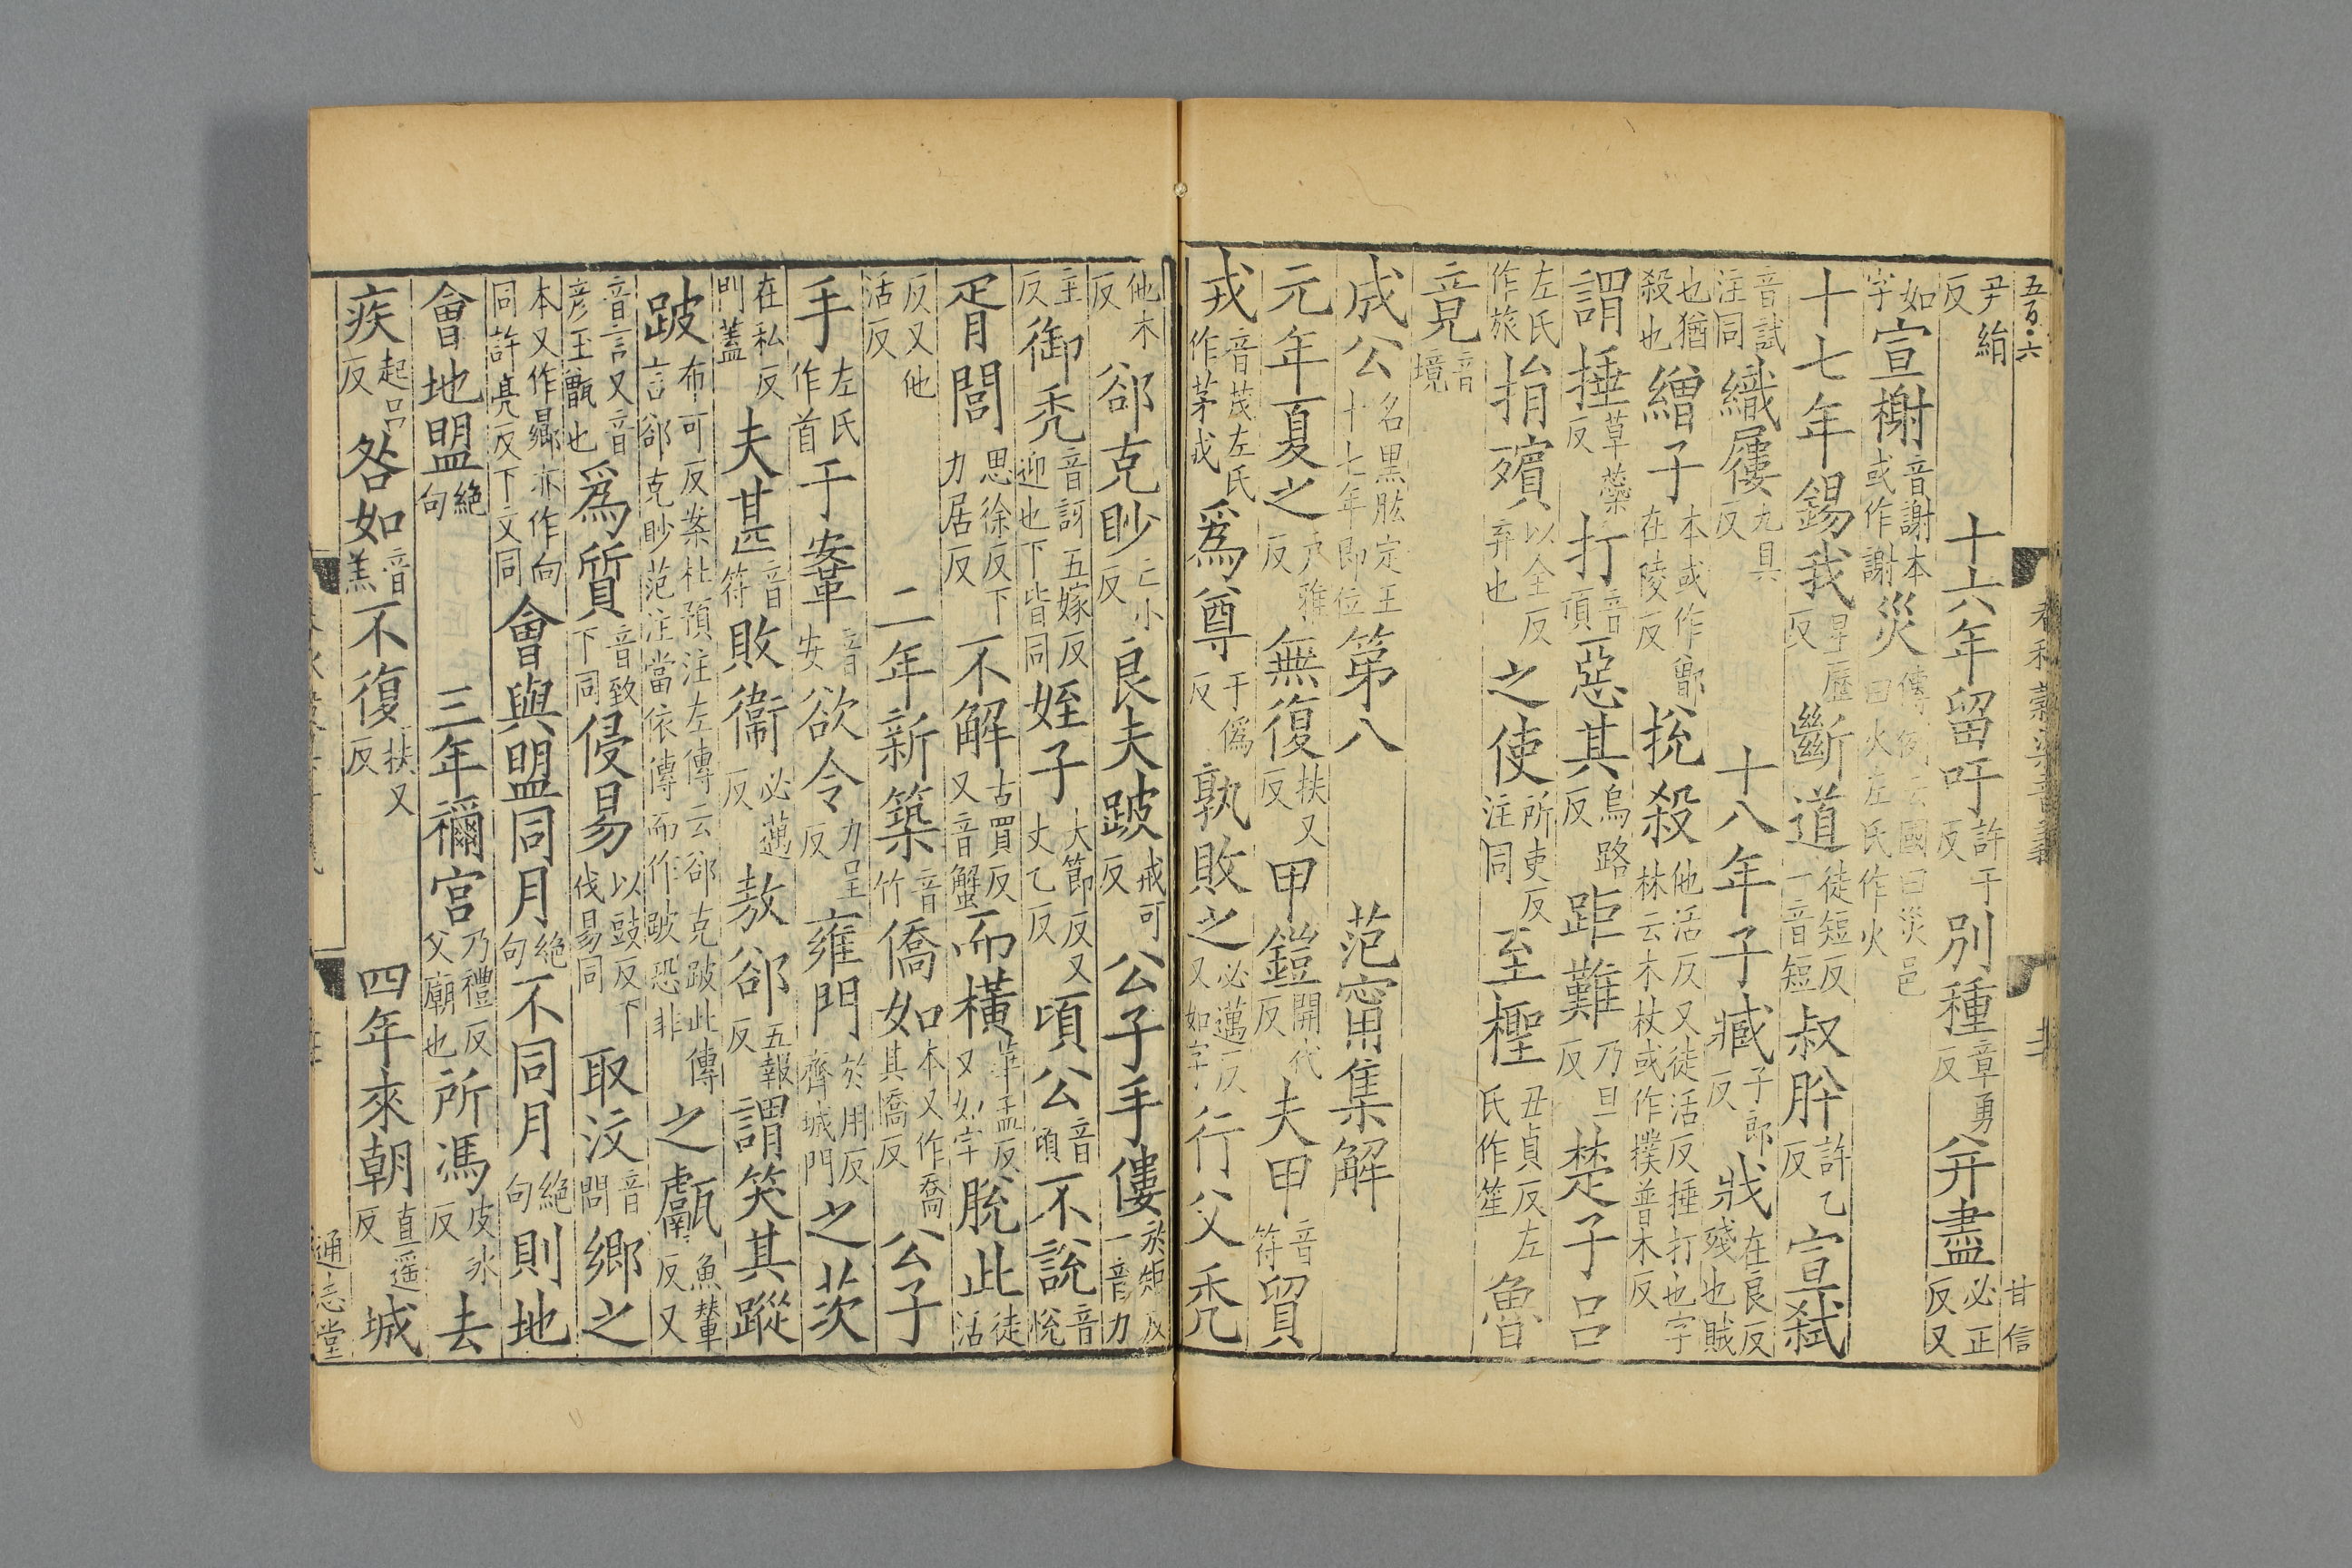 五百·六
春秋穀梁音義
甘信
尹絹反 十六年留吁許于反別種章勇反并盡必正反又
如字宣榭音謝本或作謝災傳例云國曰災邑曰火左氏作火
十七年錫我星歷反斷道徒短反一音短叔肸許乙反宣弒
音試注同織屨九具反 十八年子臧子郎反戕在良反殘也賊
也猶殺也繒子本或作鄫在陵反挩殺他活反又徒活反捶打也字林云木杖或作撲普木反
謂捶草蘂反打音頂惡其烏路反距難乃旦反楚子呂
左氏作旅捐殯以全反弃也之使所吏反注同至檉丑貞反左氏作笙魯
竟音境
成公名黑肱定王十七年即位第八 范甯集解
元年夏之戶雅反無復扶又反甲鎧開代反夫甲音符貿
戎音茂左氏作茅戎爲尊于僞反孰敗之必邁反又如字行父禿
他木反郤克眇亡小反良夫跛波可反公子手僂於矩反一音力
主反御禿音訝五嫁反迎也下皆同姪子大節反又丈乙反頃公音傾不說音悅
胥閭思徐反下力居反不解古買反又音蟹而橫華孟反又如字脫此徒活
反又他活反 二年新築音竹僑如本又作喬其驕反公子
手左氏作首于鞌音安欲令力呈反雍門於用反齊城門之茨
在私反門蓋夫甚音符敗衞必邁反敖郤五報反謂笑其蹤
跛布可反案杜預注左傳云郤克跛此傳言郤克眇范注當依傳而作跛恐非之甗魚輦反又
音言又音彥玉甑也爲質音致下同侵易以豉反下伐易同取汶音問鄉之
本又作曏亦作向同許亮反下文同會與盟同月絕句不同月絕句則地
會地盟絕句 三年禰宮乃禮反父廟也所馮皮冰反去
疾起呂反咎如音羔不復扶又反 四年來朝直遥反城
通志堂